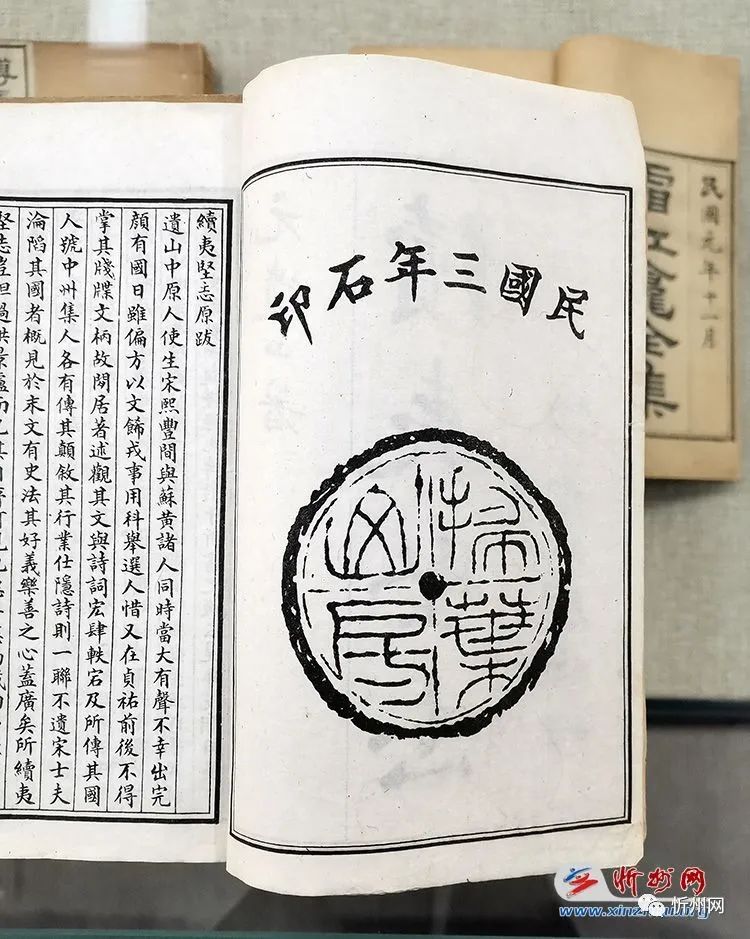 民國元年十一月
霜紅龕全集
民國三年石印
掃葉
山房
續夷堅志原跋
遺山中原人使生宋熙豐間與蘇黃諸人同時當大有聲不幸出完
顔有國日雖偏方以文飾戎事用科舉選人惜又在貞祐前後不得
掌其牋牒文柄故閒居著述觀其文與詩詞宏肆軼宕及所傳其國
人號中州集人各有傳其顛敘其行業仕隱詩則一聯不遺宋士夫
淪陷其國者概見於末文有史法其好義樂善之心蓋廣矣所續夷
堅志豈但過洪景盧而已其自
忻州网
www.xinzhou.org
忻州网